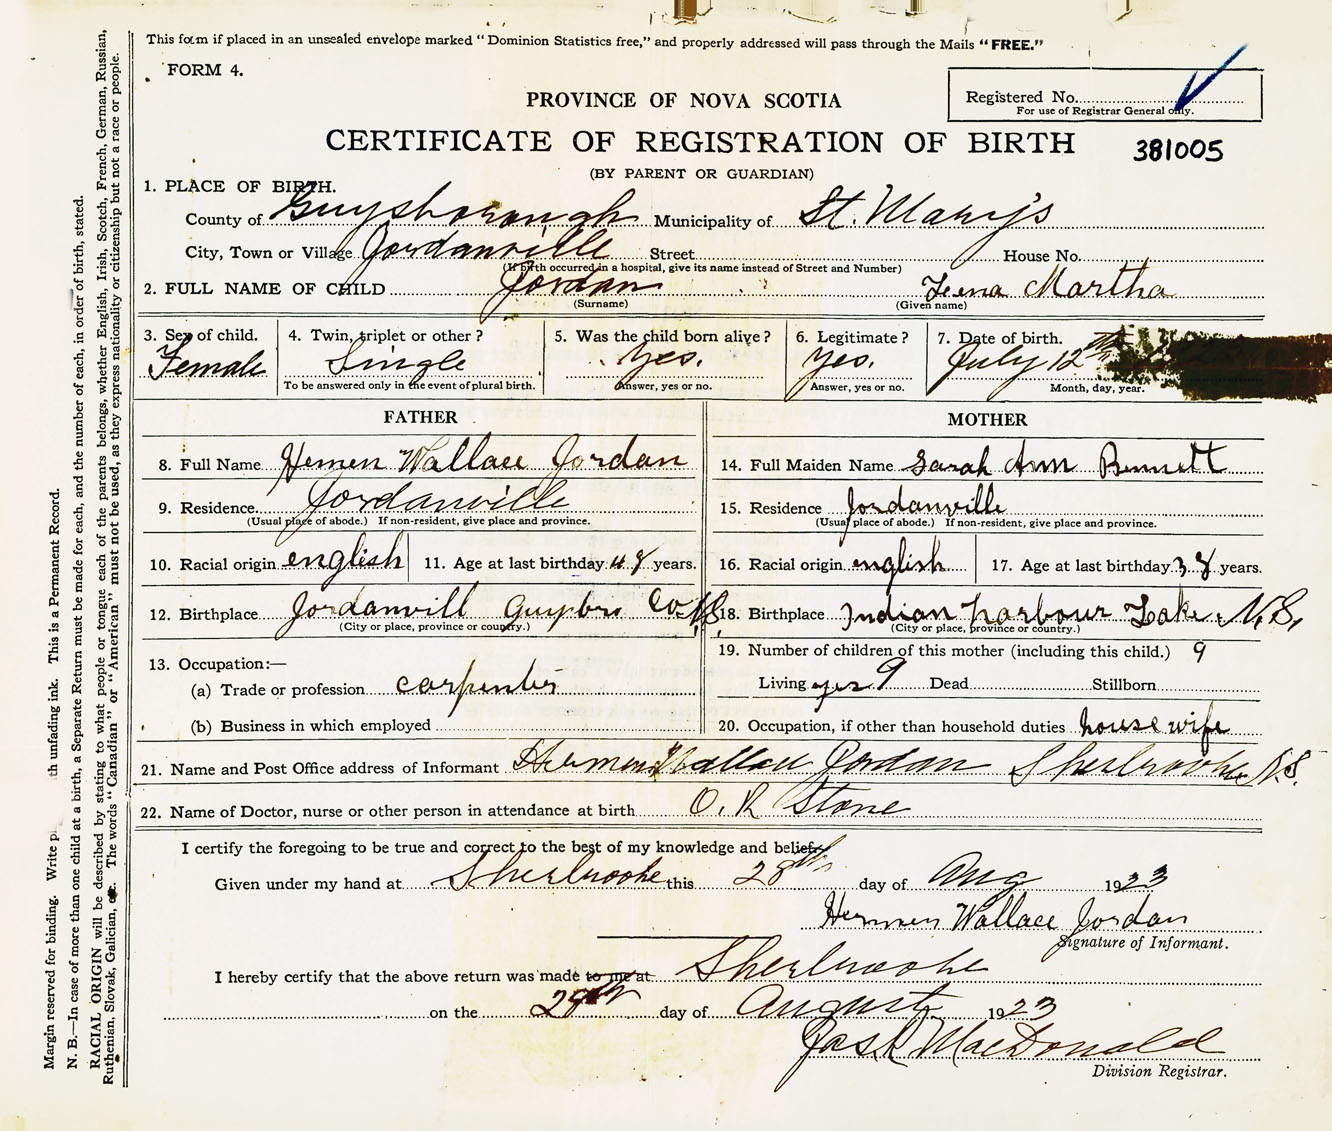 This form if placed in an unsealed envelope marked "Dominion Statistics free," and properly addressed will pass through the Mails "FREE."
FORM 4.
Registered No.
For use of Registrar General only.
PROVINCE OF NOVA SCOTIA
CERTIFICATE OF REGISTRATION OF BIRTH
381005
(BY PARENT OR GUARDIAN)
1. PLACE OF BIRTH.
County of Guysborough Municipality of St. Mary's
City, Town or Village Jordanville Street House No.
(If birth occurred in a hospital, give its name instead of Street and Number)
2. FULL NAME OF CHILD Jordan Martha
(Surname) (Given name)
3. Sex of child. 4. Twin, triplet or other? 5. Was the child born alive? 6. Legitimate? 7. Date of birth.
Female Single yes. yes. July 12th
To be answered only in the event of plural birth. Answer, yes or no. Answer, yes or no. Month, day, year.
FATHER MOTHER
8. Full Name Hemen Wallace Jordan 14. Full Maiden Name Sarah Ann Bennett
9. Residence Jordanville 15. Residence Jordanville
(Usual place of abode.) If non-resident, give place and province. (Usual place of abode.) If non-resident, give place and province.
10. Racial origin english 11. Age at last birthday 48 years. 16. Racial origin english 17. Age at last birthday 38 years.
12. Birthplace Jordanvill Guysbro Co N.S. 18. Birthplace Indian harbour Lake N.S.
(City or place, province or country.) (City or place, province or country.)
13. Occupation:— 19. Number of children of this mother (including this child.) 9
(a) Trade or profession carpenter Living yes 9 Dead Stillborn
(b) Business in which employed 20. Occupation, if other than household duties house wife
21. Name and Post Office address of Informant Hermen Wallace Jordan Sherbrooke N.S.
22. Name of Doctor, nurse or other person in attendance at birth O. R Stone
I certify the foregoing to be true and correct to the best of my knowledge and belief.
Given under my hand at Sherbrooke this 28th day of Aug 1923
Hermen Wallace Jordan
Signature of Informant.
I hereby certify that the above return was made to me at Sherbrooke
on the 28th day of August 1923
Jas R MacDonald
Division Registrar.
Margin reserved for binding. Write unfading ink. This is a Permanent Record.
N. B.—In case of more than one child at a birth, a Separate Return must be made for each, and the number of each, in order of birth, stated.
RACIAL ORIGIN will be described by stating to what people or tongue each of the parents belongs, whether English, Irish, Scotch, French, German, Russian,
Ruthenian, Slovak, Galician, The words "Canadian" or "American" must not be used, as they express nationality or citizenship but not a race or people.